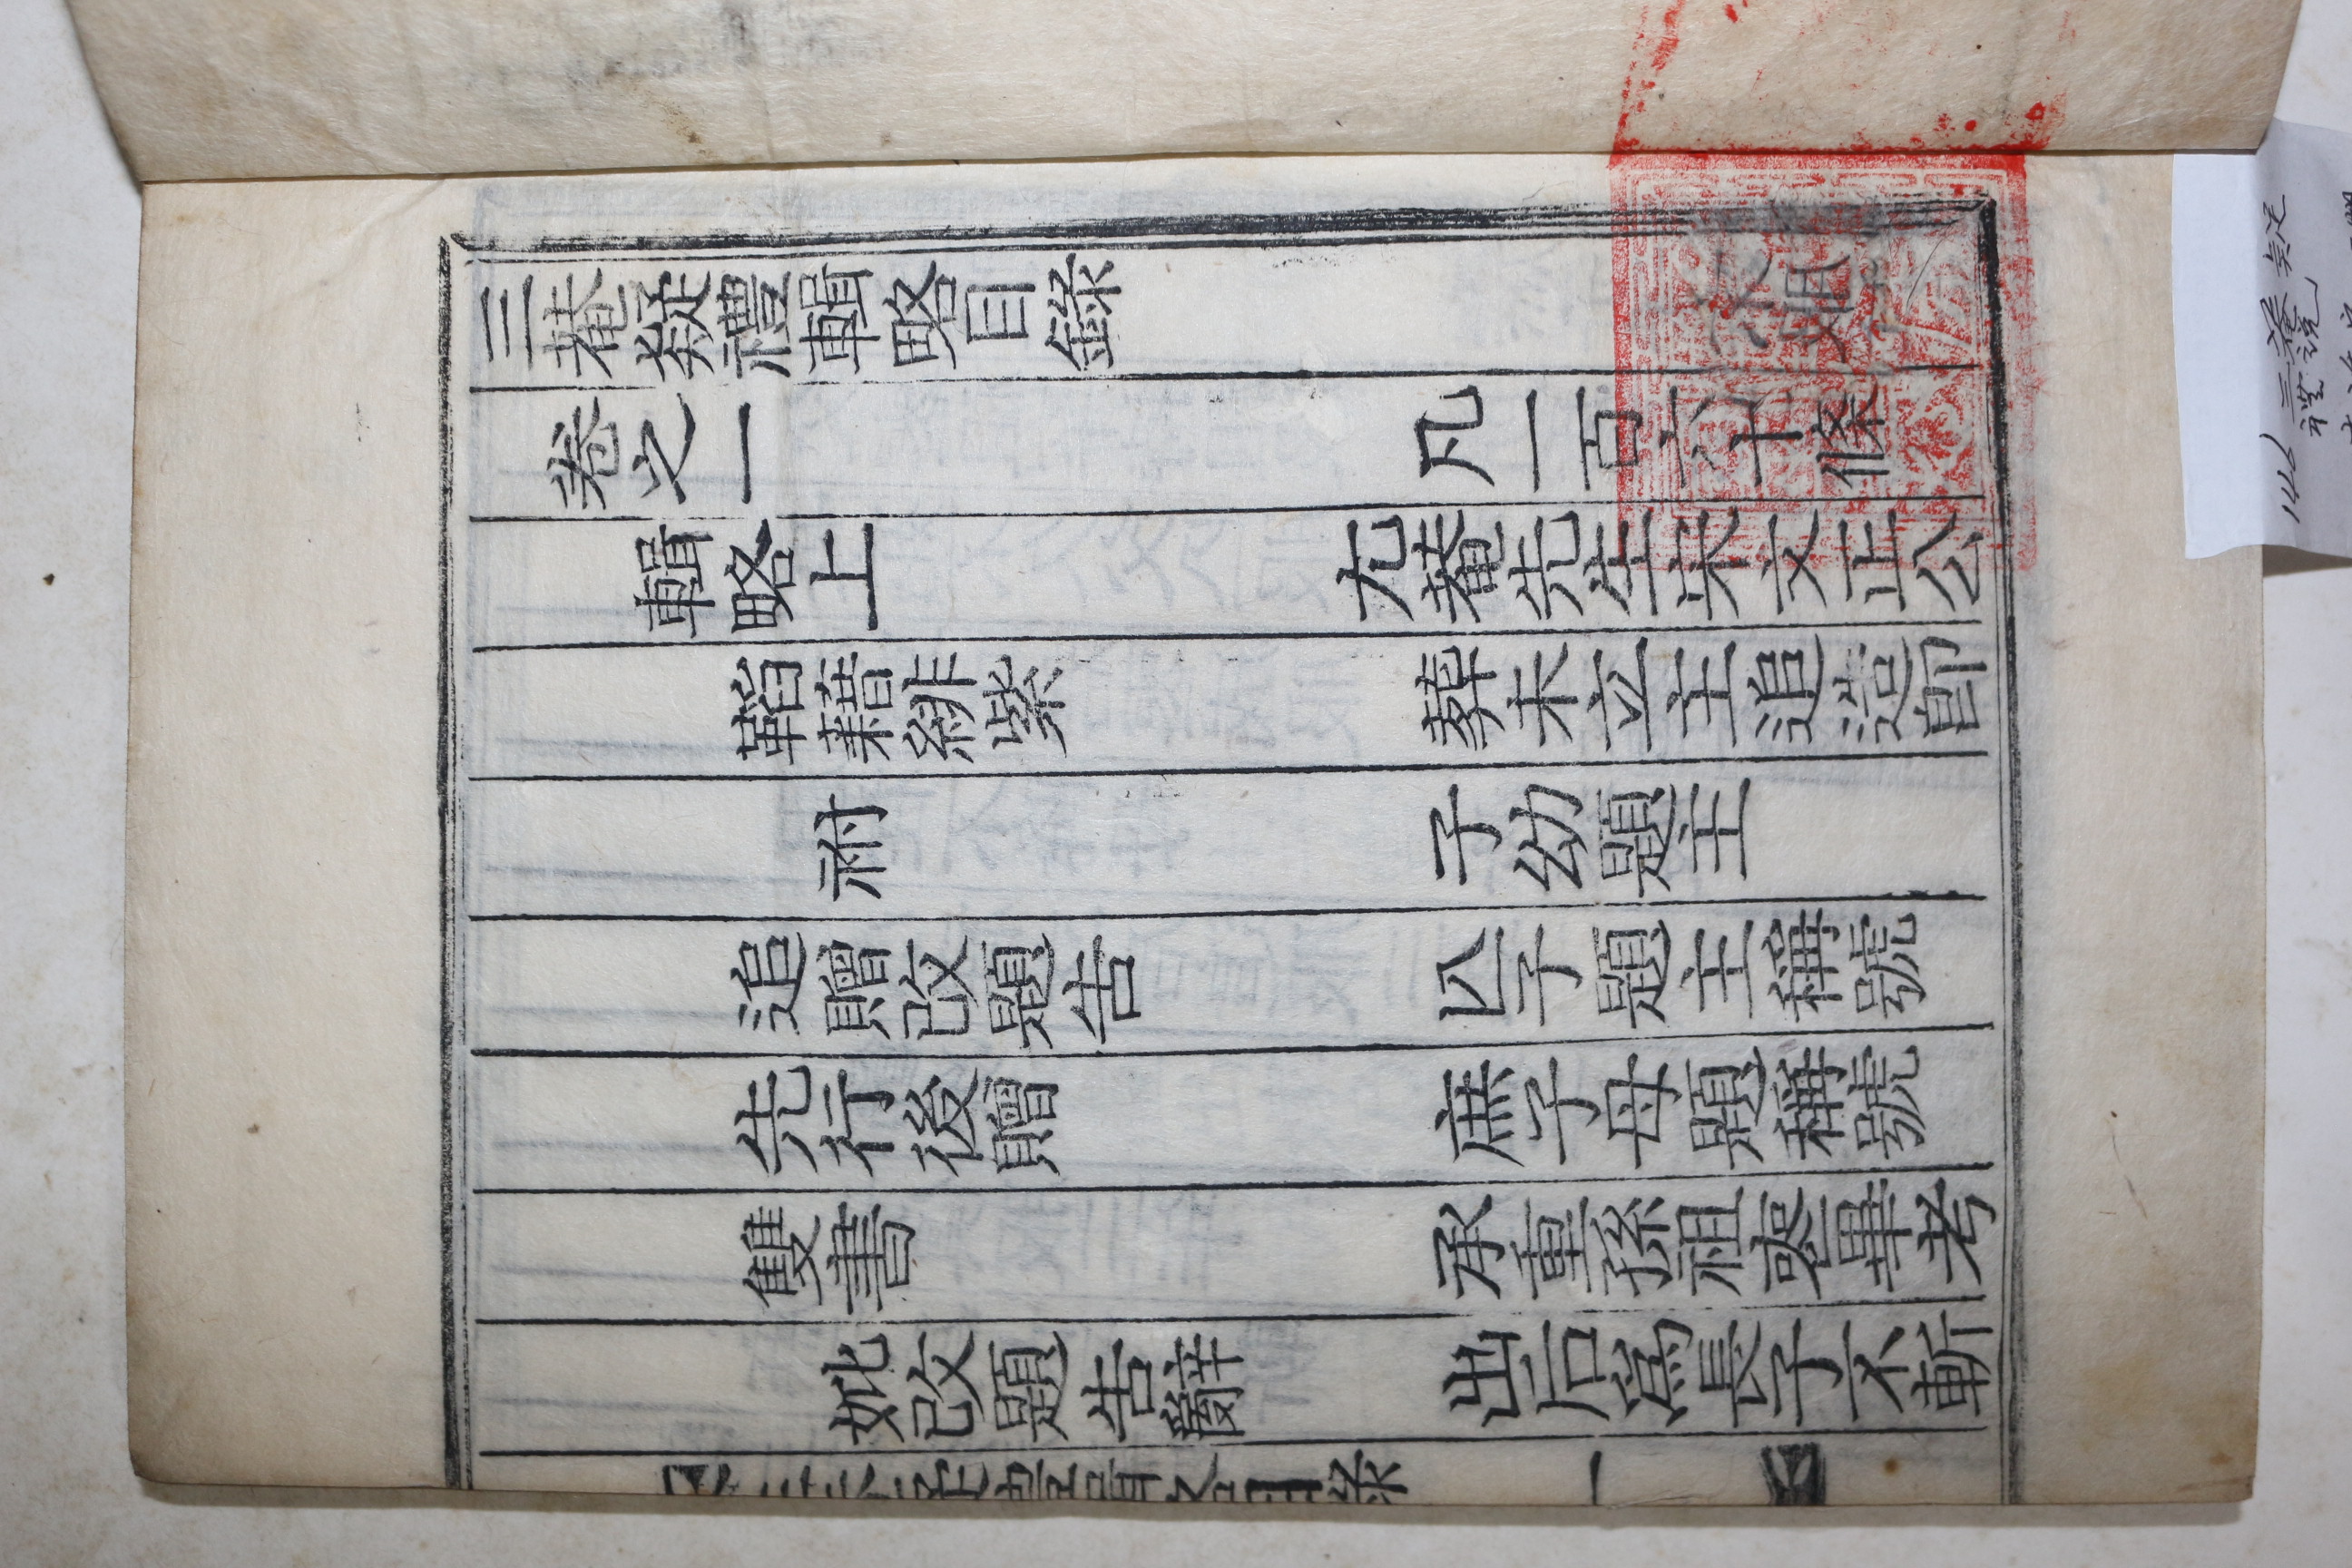 三菴疑禮輯略目錄
卷之一 凡一百六十條
輯略上 尤菴先生宋文正公
鞱藉緋紫 葬未立主追造卽
祔 子幼題主
追贈改題告 亾子題主稱號
先行後贈 庶子母題稱號
雙書 承重孫祖喪畢考
妣改題告辭 出后爲長子不斬
錄 一
146 三菴疑
禮說